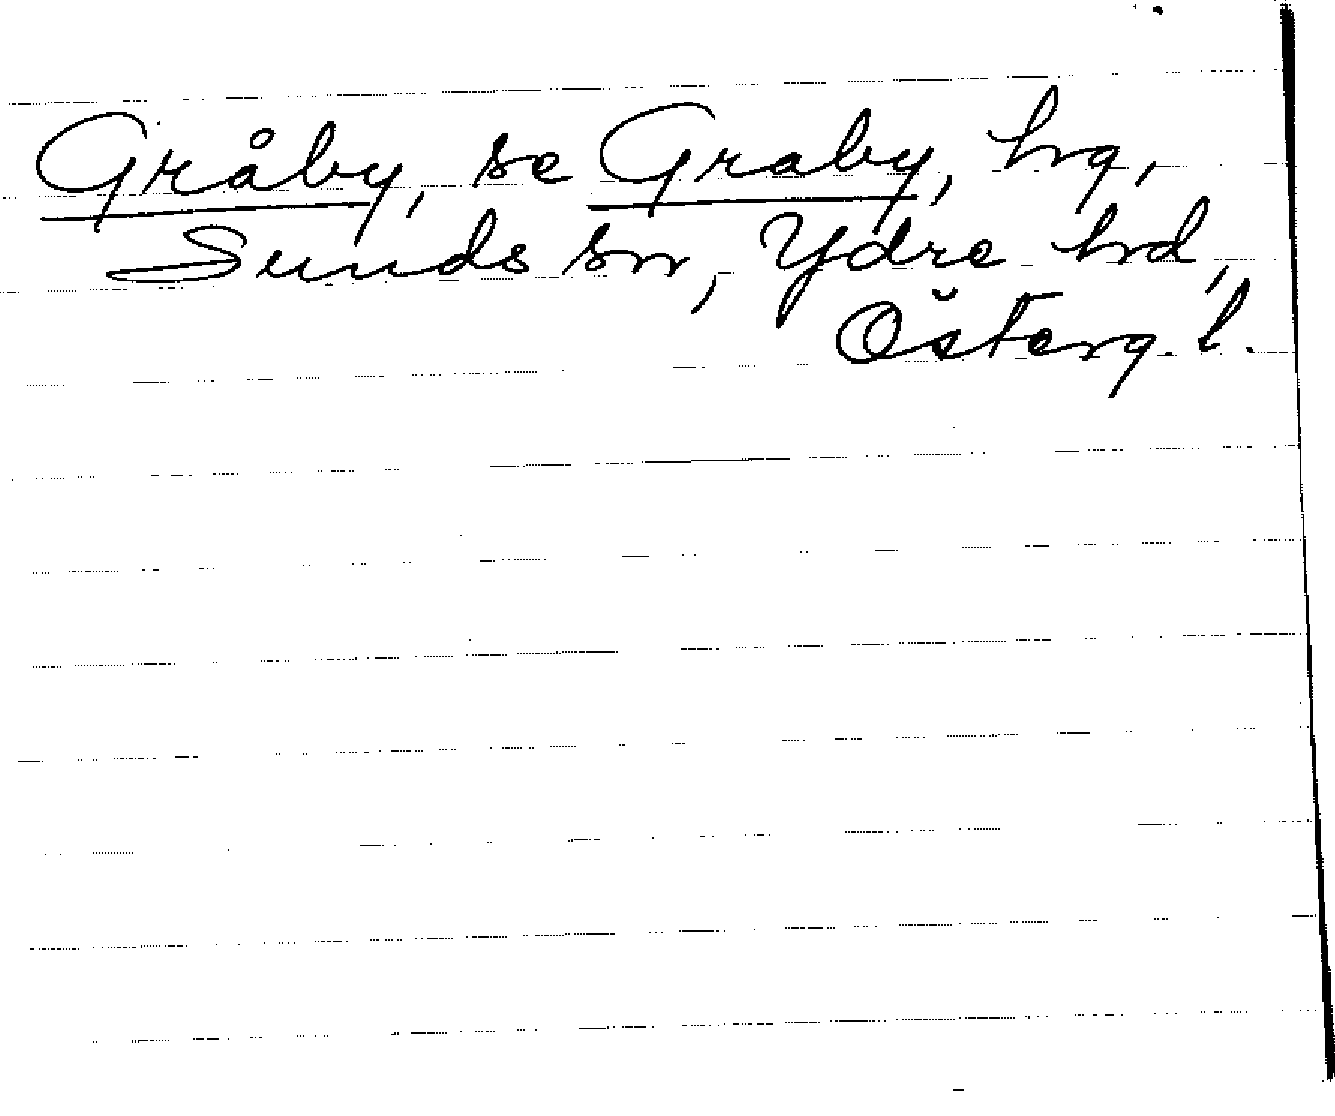 Gråby, se Graby, hg,
Sunds sn, Ydre hd,
Österg. l.